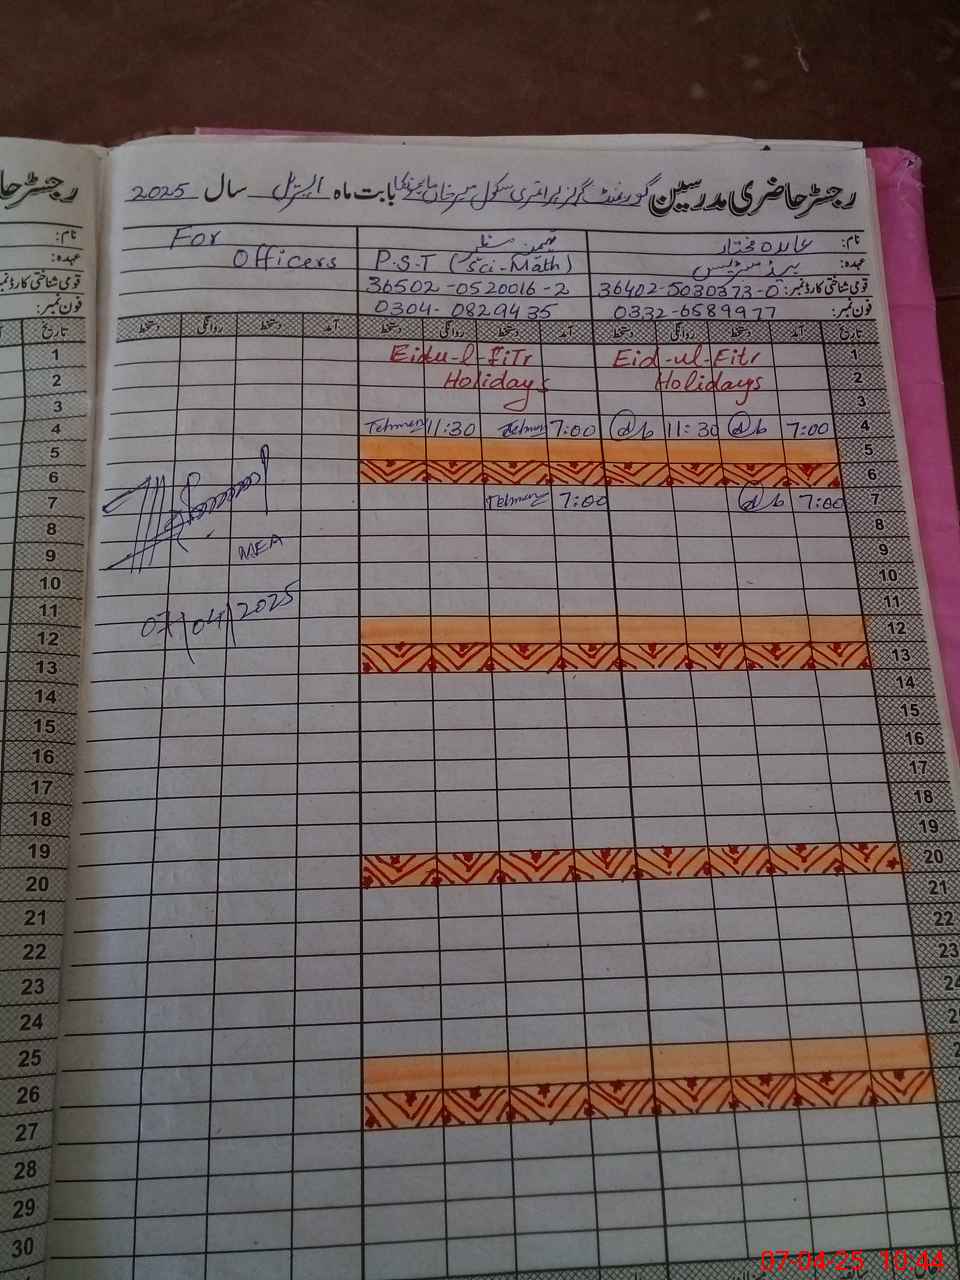 رجسٹر حاضری مدرسین گورنمنٹ گرلز پرائمری سکول بابت ماہ اپریل سال 2025
رجسٹر حا
نام:
عہدہ:
قومی شناختی کارڈ نمبر:
فون نمبر:
عابدہ مختار
ہیڈ مسٹریس
36402-5030373-0
0332-6589977
P.S.T (Sci-Math)
36502-0520016-2
0304-0829435
For
Officers
تاریخ آمد دستخط روانگی دستخط آمد دستخط روانگی دستخط آمد دستخط روانگی دستخط تاریخ
1 Eid-ul-Fitr Eidu-l-FiTr 1
2 Holidays Holidays 2
3 3
4 7:00 11:30 7:00 Tehmen 11:30 Tehmen 4
5 5
6 6
7 7:00 7:00 Tehmen 7
8 8
9 9
10 10
11 11
12 12
13 13
14 14
15 15
16 16
17 17
18 18
19 19
20 20
21 21
22 22
23 23
24 24
25
26
27
28
29
30
MEA
07/04/2025
07-04-25 10:44